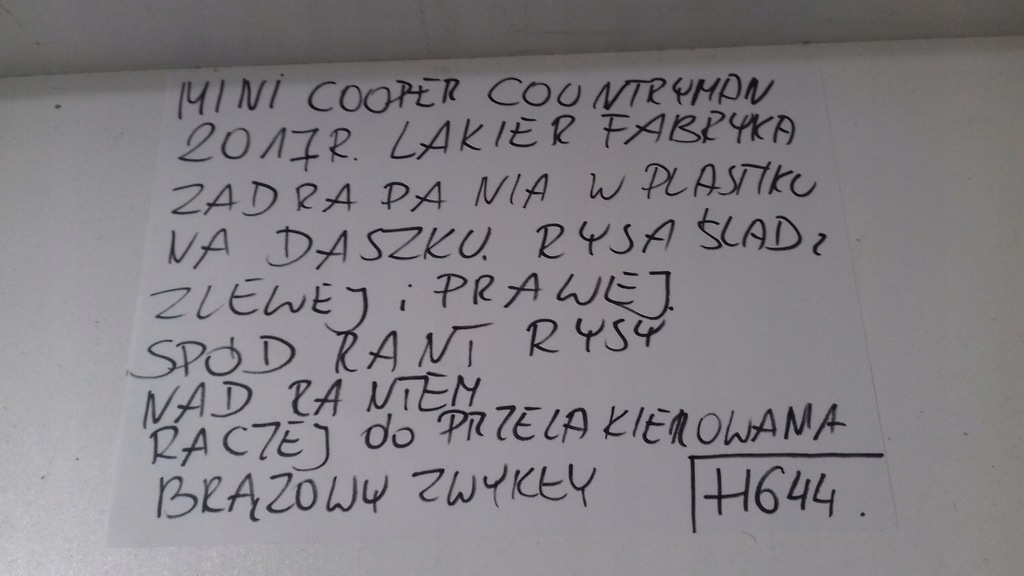 MINI COOPER COUNTRYMAN
2017R. LAKIER FABRYKA
ZADRAPANIA W PLASTIKU
NA DASZKU. RYSA ŚLAD
Z LEWEJ i PRAWEJ.
SPÓD RANT RYSY
NAD RANTEM
RACZEJ do PRZELAKIEROWANIA
BRĄZOWY ZWYKŁY H644.